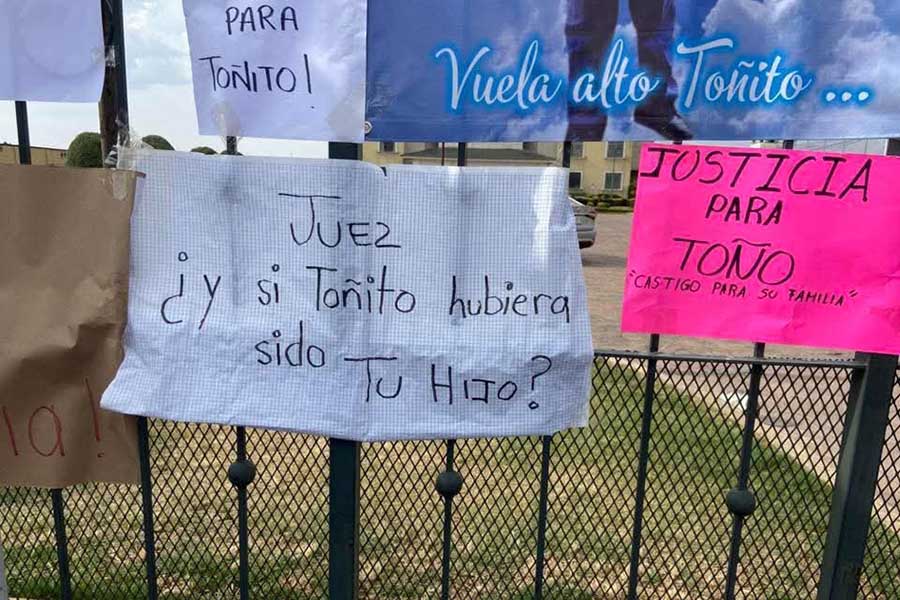 PARA
TOÑITO!
Vuela alto Toñito ...
JUEZ
¿y si Toñito hubiera
sido TU HIJO?
JUSTICIA
PARA
TOÑO
"CASTIGO PARA SU FAMILIA"